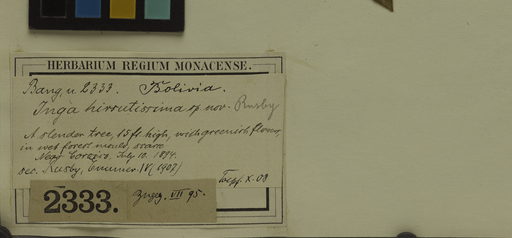 HERBARIUM REGIUM MONACENSE.
Bang. n. 2333. Bolivia.
Inga hirsutissima sp. nov. Rusby
A slender tree, 15 ft high, with greenish flowers,
in wet forest mould, scarce
Near Coroico. July 10. 1894.
Rusby, IV (1907)
X. 08
2333. VII 95.